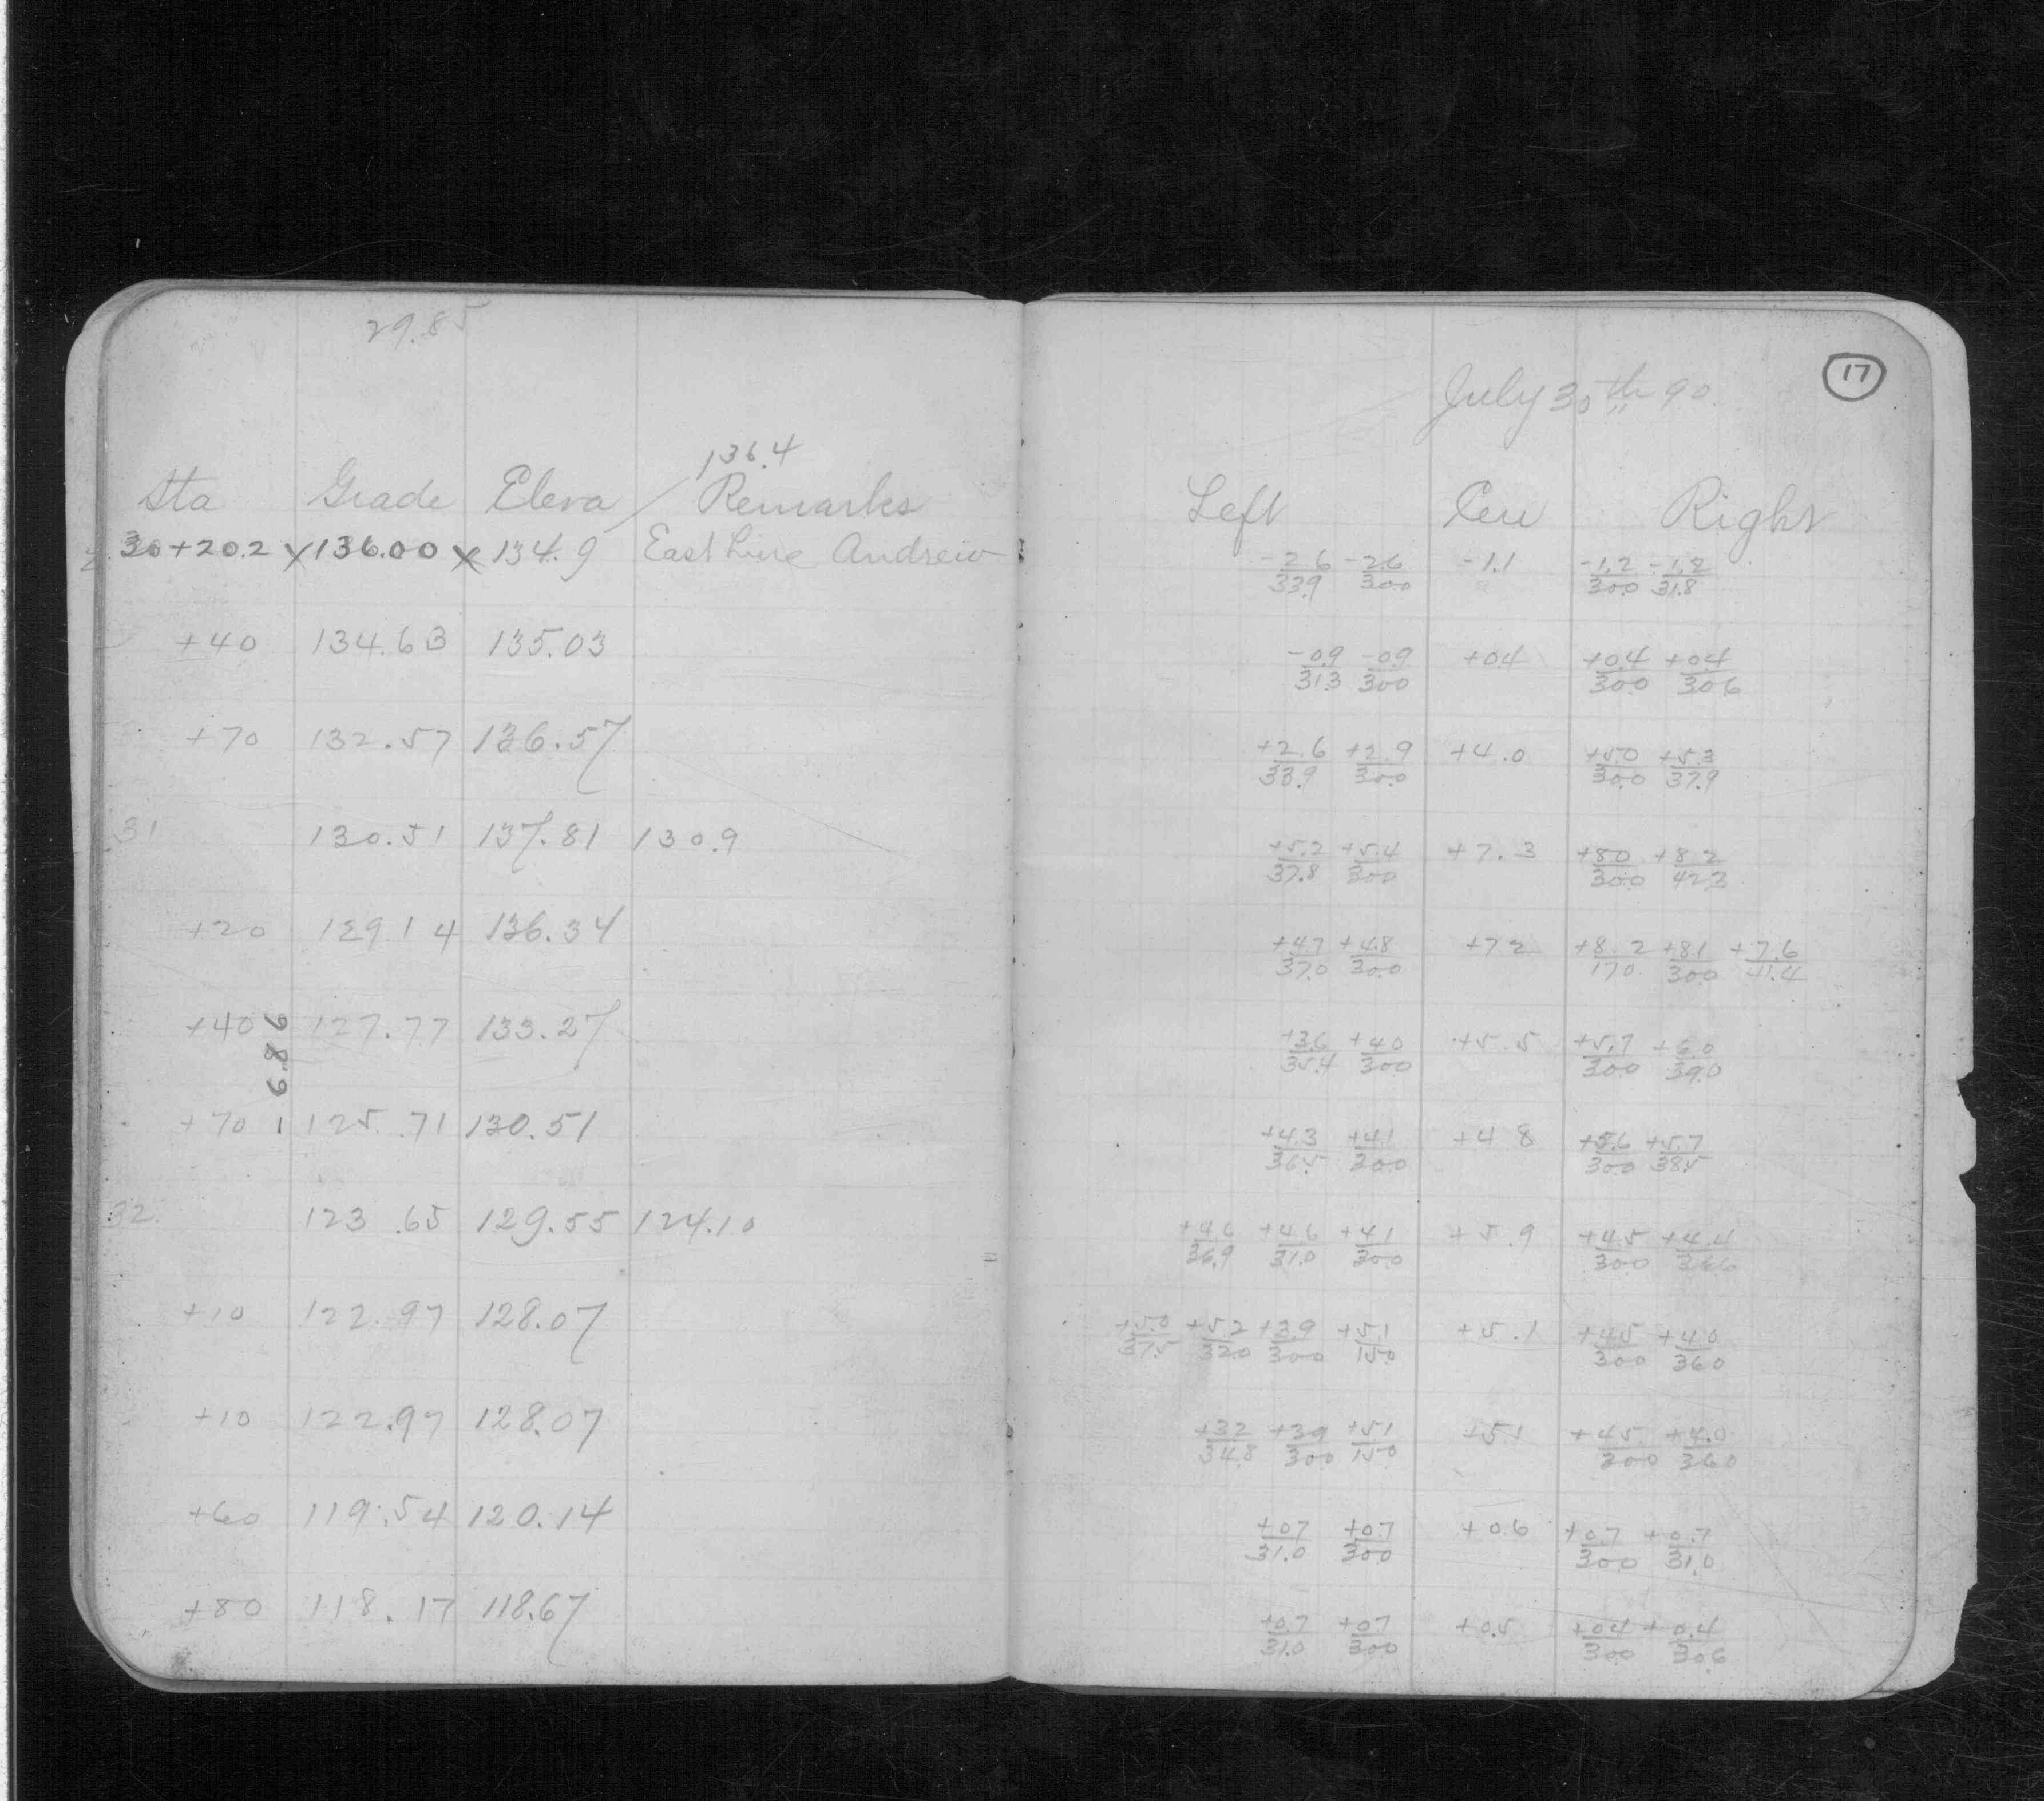 29.85
136.4
Sta Grade Eleva / Remarks
30+20.2 x 136.00 x 134.9 East Line Andrew
+40 134.63 135.03
+70 132.57 136.57
31 130.51 137.81 130.9
+20 129.14 136.34
+40 127.77 133.27
6.86
+70 125.71 130.51
32 123.65 129.55 124.10
+10 122.97 128.07
+10 122.97 128.07
+60 119.54 120.14
+80 118.17 118.67
17
July 30th 90.
Left Cen Right
-2.6/33.9 -2.6/30.0 -1.1 -1.2/30.0 -1.2/31.8
-0.9/31.3 -0.9/30.0 +0.4 +0.4/30.0 +0.4/30.6
+2.6/33.9 +2.9/30.0 +4.0 +5.0/30.0 +5.3/37.9
+5.2/37.8 +5.4/30.0 +7.3 +8.0/30.0 +8.2/42.3
+4.7/37.0 +4.8/30.0 +7.2 +8.2/17.0 +8.1/30.0 +7.6/41.4
+3.6/35.4 +4.0/30.0 +5.5 +5.7/30.0 +6.0/39.0
+4.3/36.5 +4.1/30.0 +4.8 +5.6/30.0 +5.7/38.5
+4.6/36.9 +4.6/31.0 +4.1/30.0 +5.9 +4.5/30.0 +4.4/36.6
+5.0/37.5 +5.2/32.0 +3.9/30.0 +5.1/15.0 +5.1 +4.5/30.0 +4.0/36.0
+3.2/34.8 +3.9/30.0 +5.1/15.0 +5.1 +4.5/30.0 +4.0/36.0
+0.7/31.0 +0.7/30.0 +0.6 +0.7/30.0 +0.7/31.0
+0.7/31.0 +0.7/30.0 +0.5 +0.4/30.0 +0.4/30.6